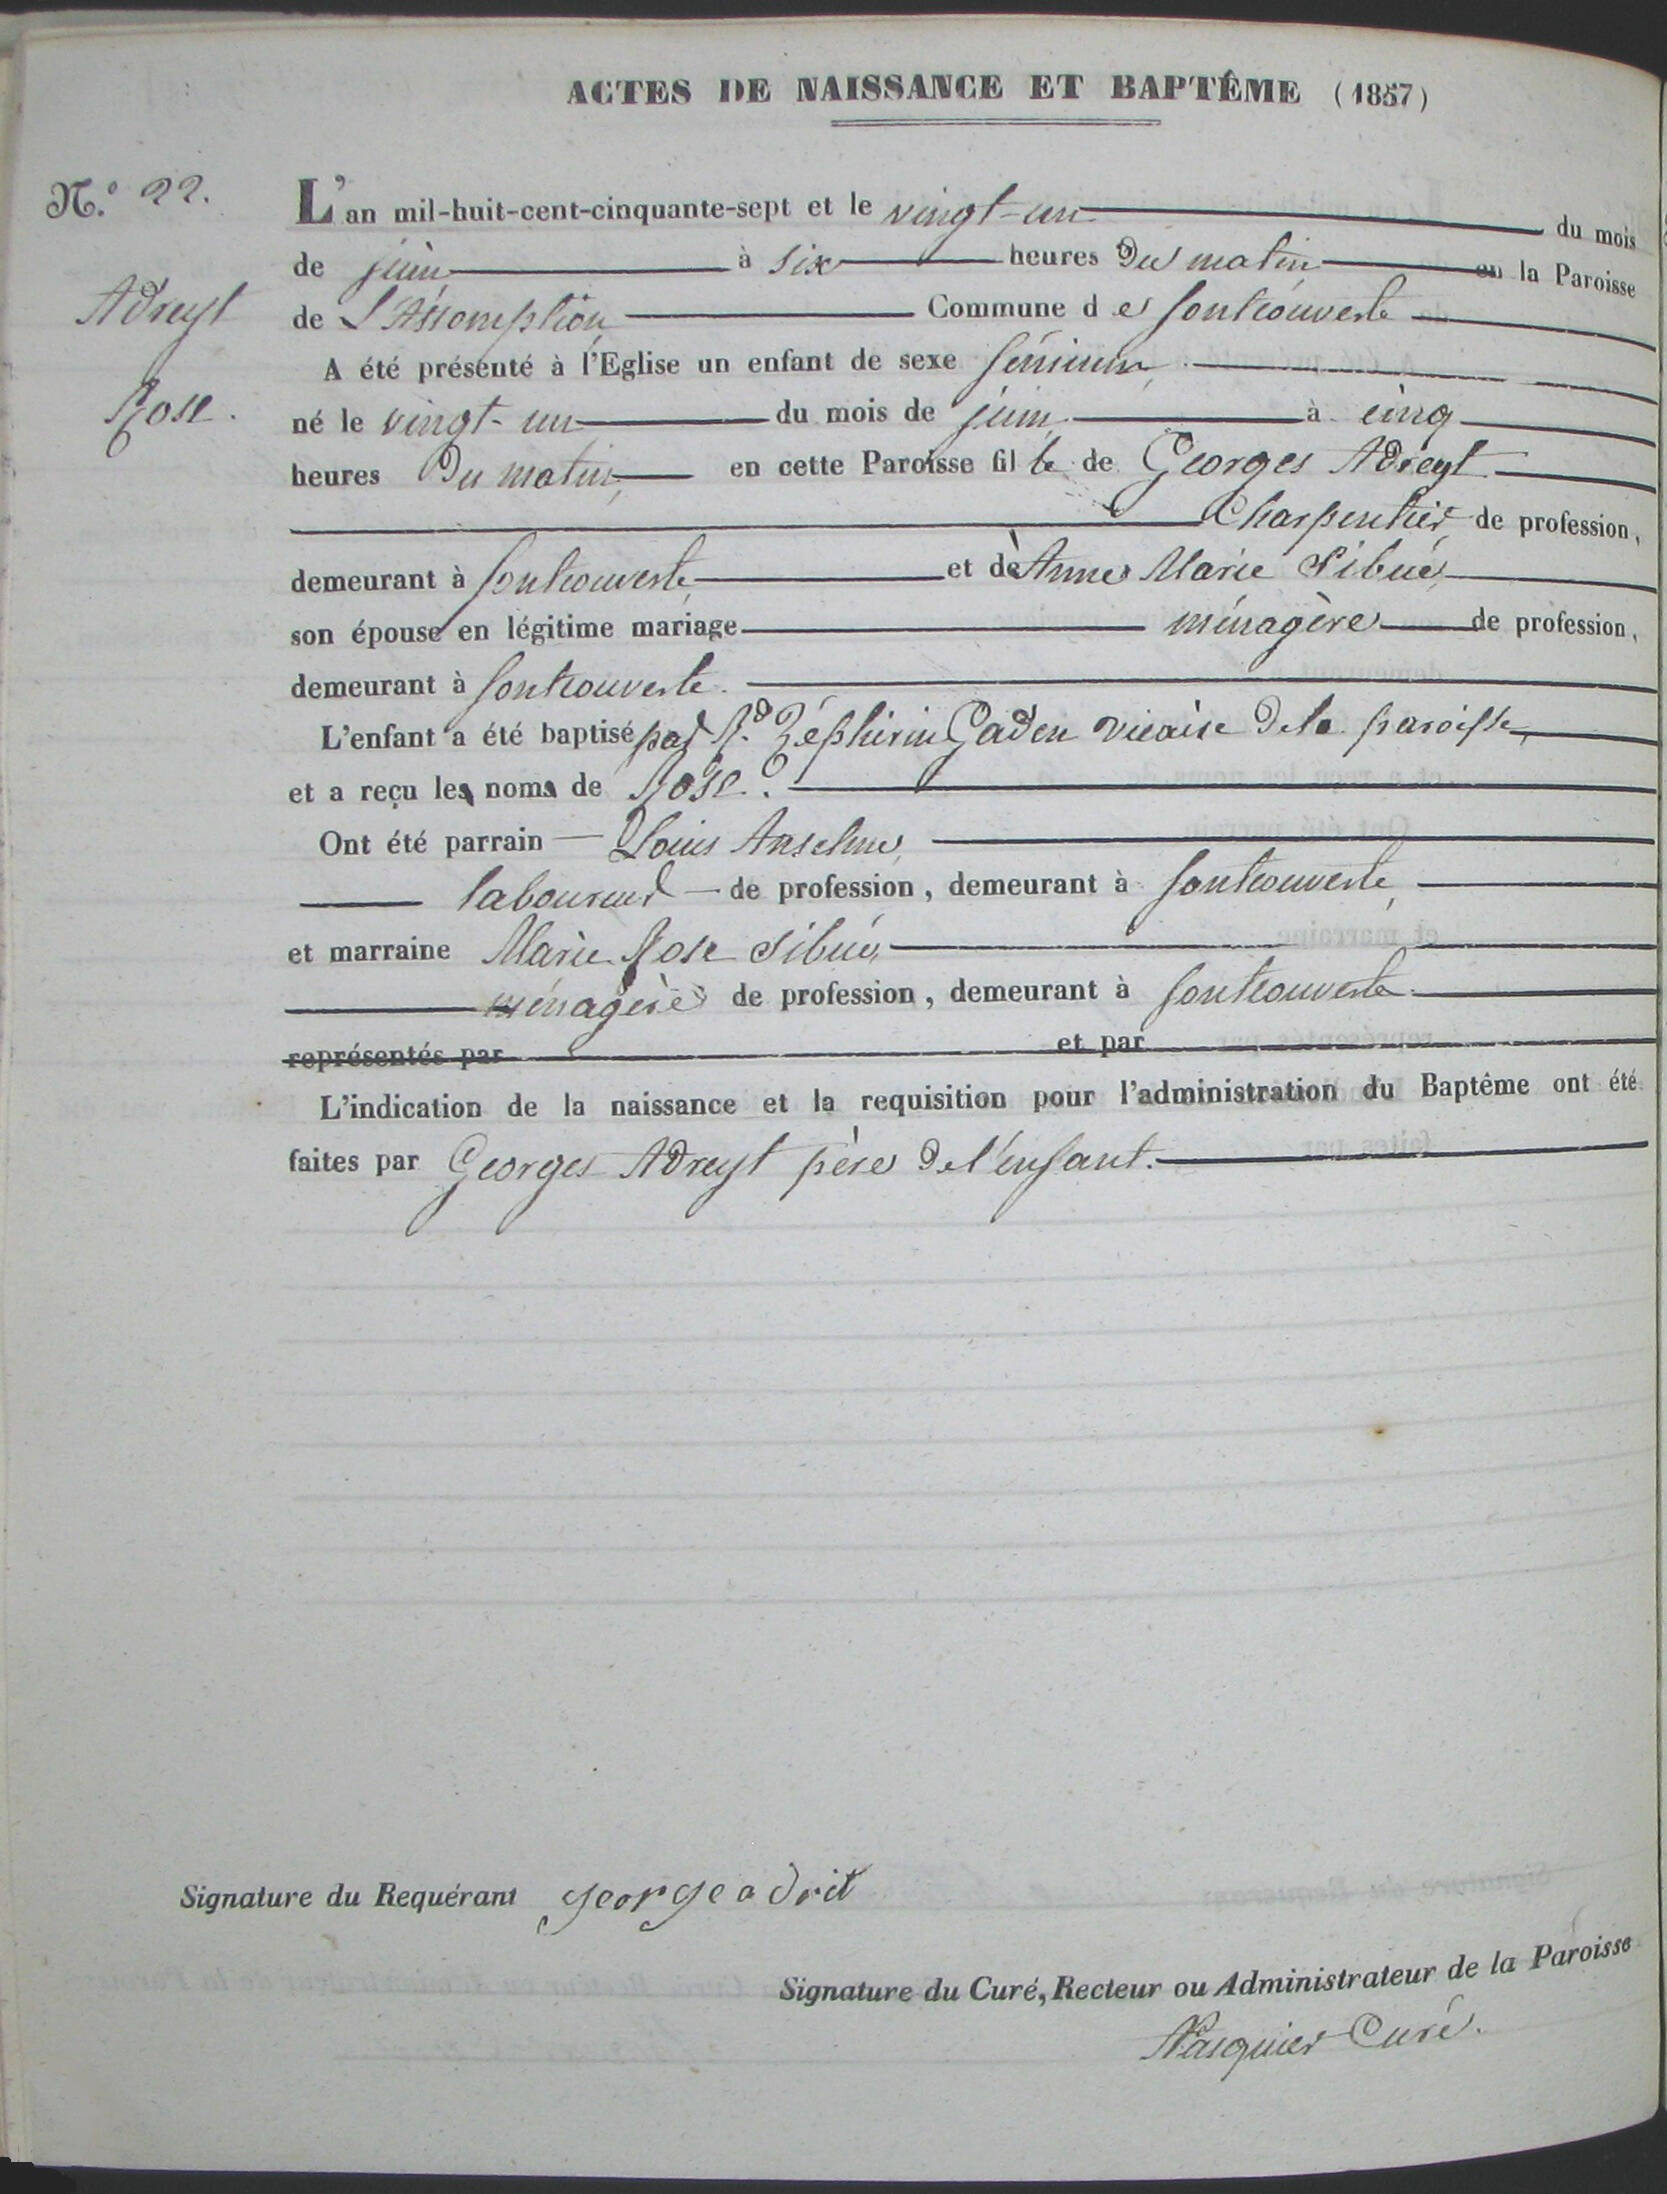 ACTES DE NAISSANCE ET BAPTÊME (1857)
N.º 22.
Adreyt
Rose.
L'an mil-huit-cent-cinquante-sept et le vingt-un du mois
de juin à six heures du matin en la Paroisse
de L'Assomption Commune de fontcouverte
A été présenté à l'Eglise un enfant de sexe féminin,
né le vingt-un du mois de juin à cinq
heures du matin, en cette Paroisse fille de Georges Adreyt
Charpentier de profession,
demeurant à fontcouverte, et de Anne Marie Sibué,
son épouse en légitime mariage ménagère de profession,
demeurant à fontcouverte.
L'enfant a été baptisé par Rd Zéphirin Gaden vicaire de la paroisse,
et a reçu les noms de Rose.
Ont été parrain Louis Anselme,
laboureur de profession, demeurant à fontcouverte,
et marraine Marie Rose Sibué,
ménagère de profession, demeurant à fontcouverte.
représentés par et par
L'indication de la naissance et la requisition pour l'administration du Baptême ont été
faites par Georges Adreyt père de l'enfant.
Signature du Requérant george adrit
Signature du Curé, Recteur ou Administrateur de la Paroisse
Pasquier Curé.